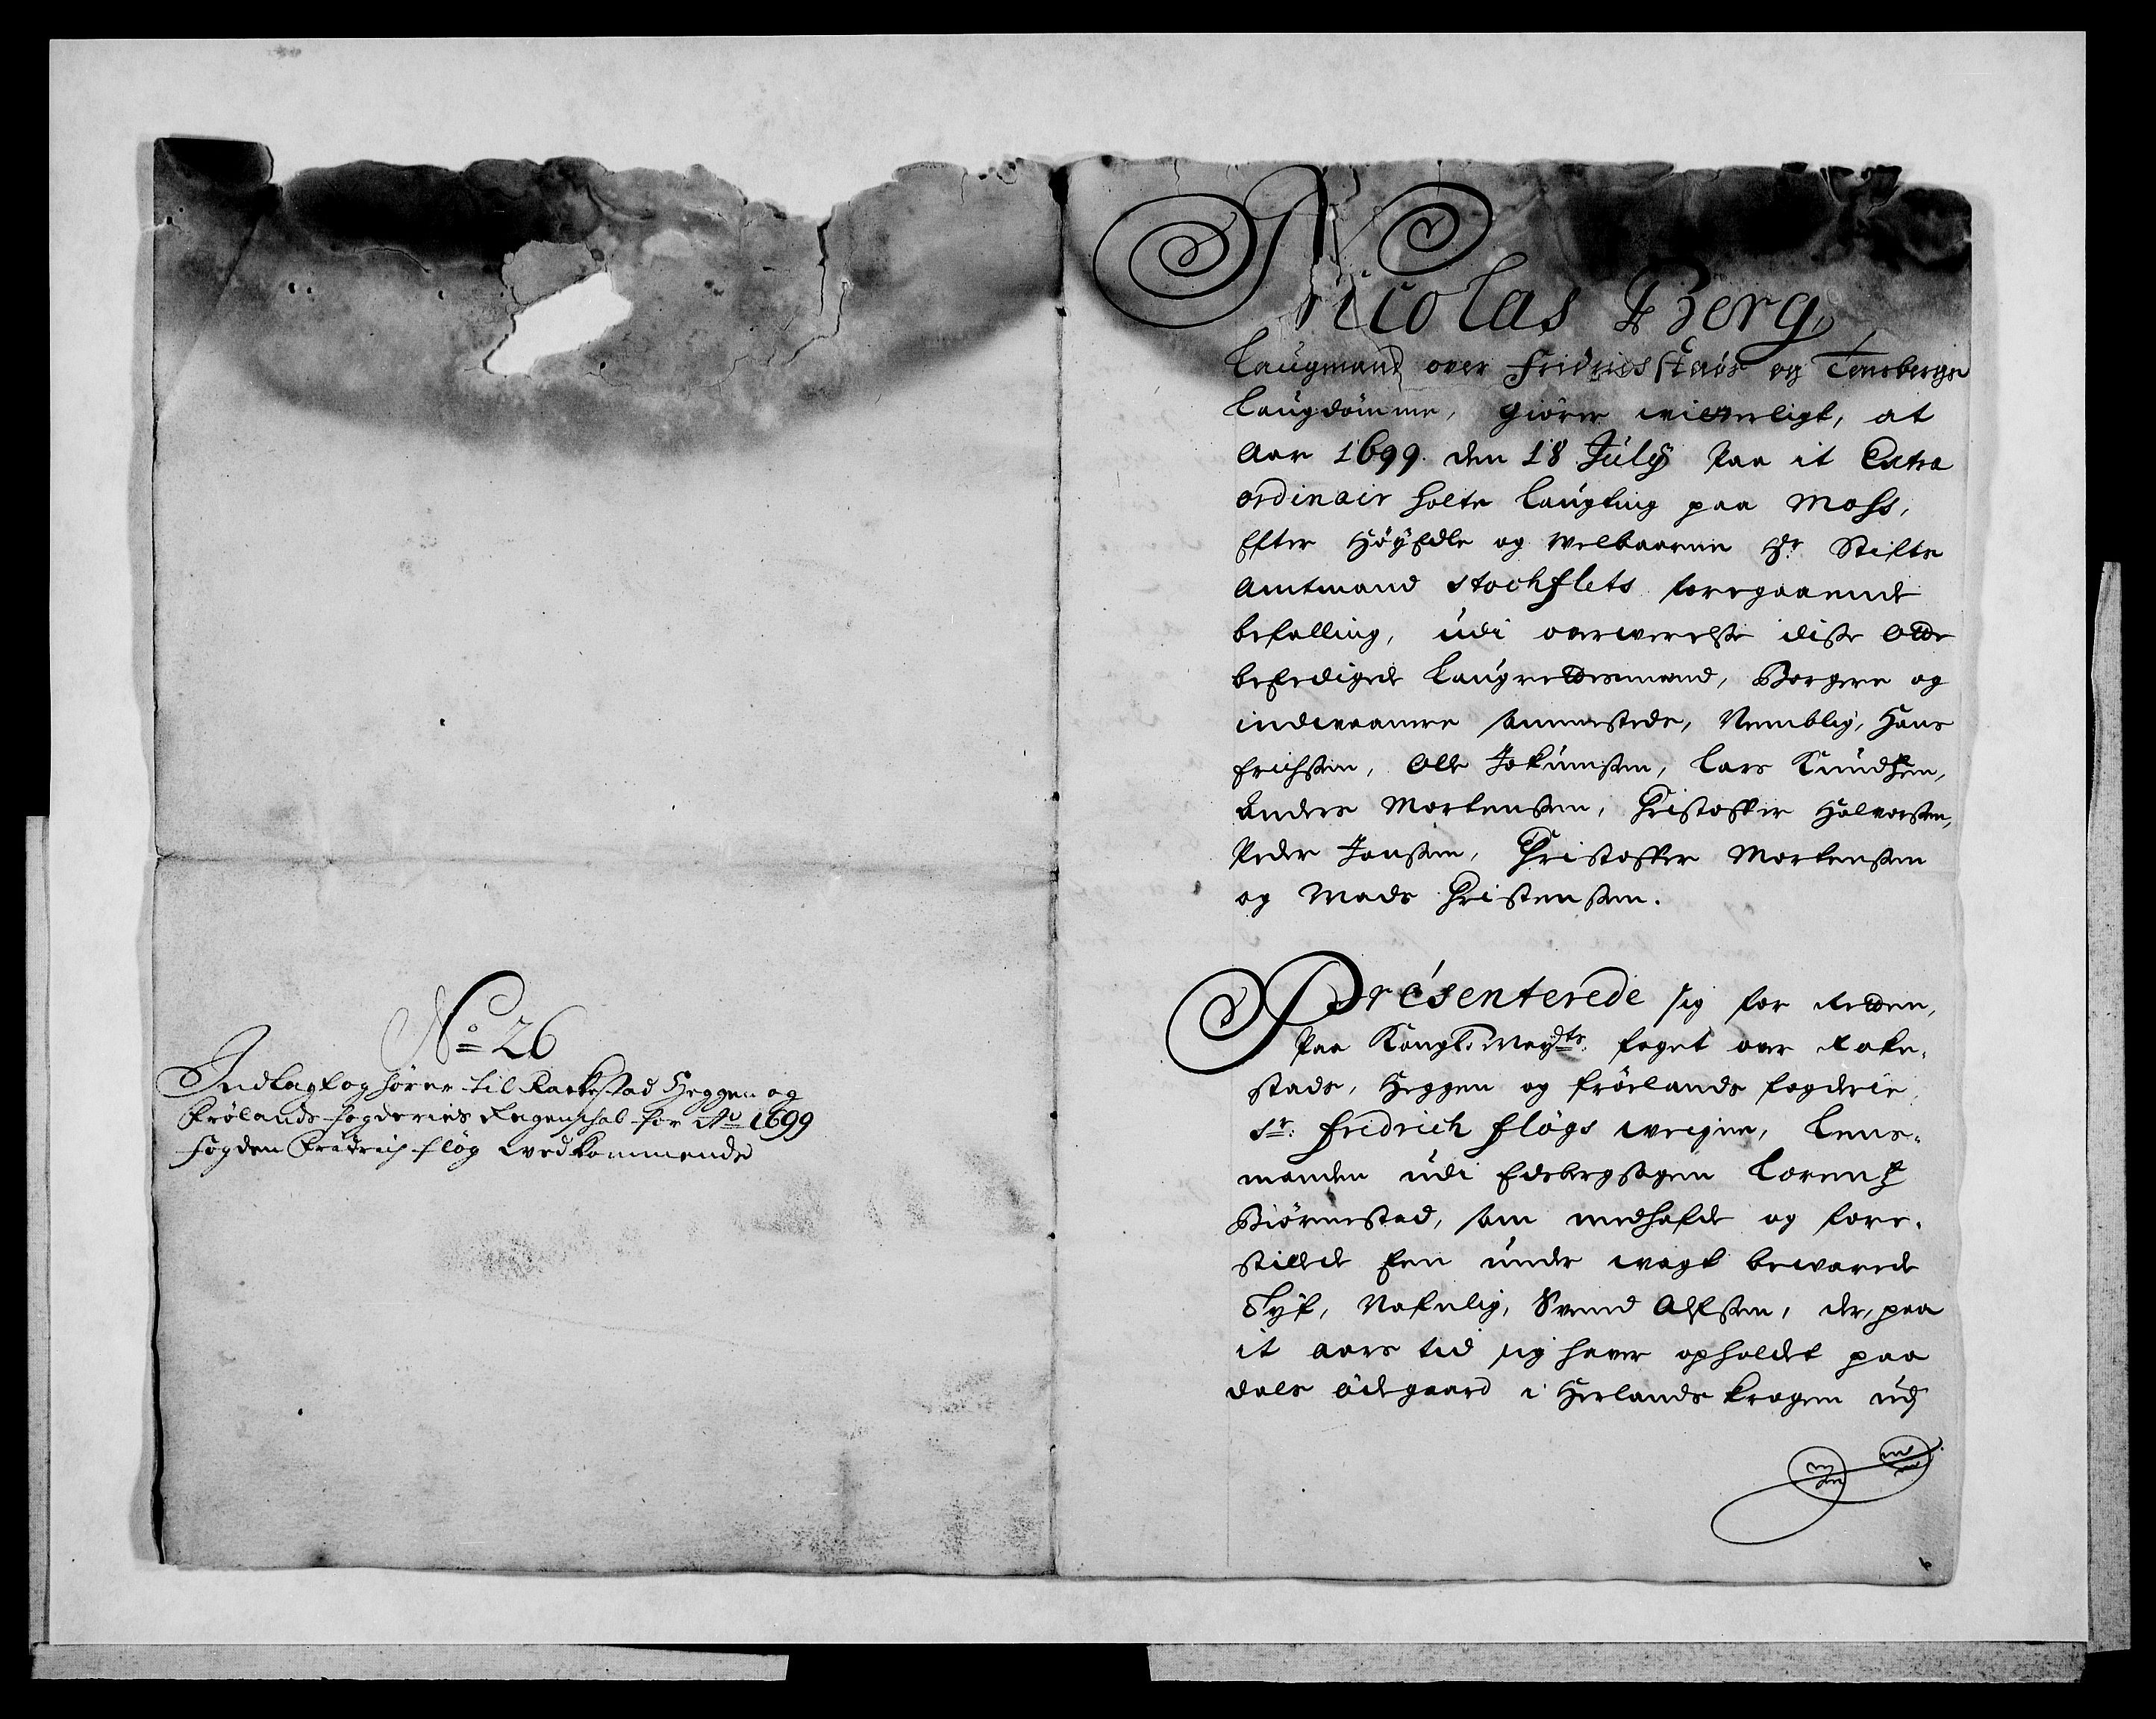 No 26
Indlagt og hører til Rackestad Heggen og
Frølands fogderies Regenschab for Ao 1699
fogden Fridrich fløg Vedkommende
Nicolas Berg,
Laugmand over Fridrichstads og Tonsbergs
Laugdömme, giörer witterligt, at
Aar 1699. den 18 Julÿ paa it Extra
ordinair holte Laugting paa Moss,
Efter HöÿEdle og Welbaarne Hr. Stifts
Amtmand Stochflets foregaaende
befalling, udi overwerelsse disse Otte
beEedigede Laugrettesmænd, Borgere og
indwaanere sammesteds, Nemblig, Hans
Erichssen, Olle Jokumssen, Lars Knudssen,
Anders Mortenssen, Christoffer Halvorssen,
Peder Janssen, Christoffer Mortenssen
og Mads Christenssen.
Præsenterede sig for Retten,
Paa Kongl: Maÿts: foget over Rake-
stads, Heggen og frölands fogderie
Sr: Fridrich Fløgs weigne, Lens-
manden udi Edsbergs sogen Lorentz
Biörnestad, som medhafde og fore-
stillede Een under wagt bewarede
Tÿf, Nafnlig, Svend Olssen, der, paa
it aars tid sig hawer opholdet paa
dals ödegaard i Herlands kragen udj